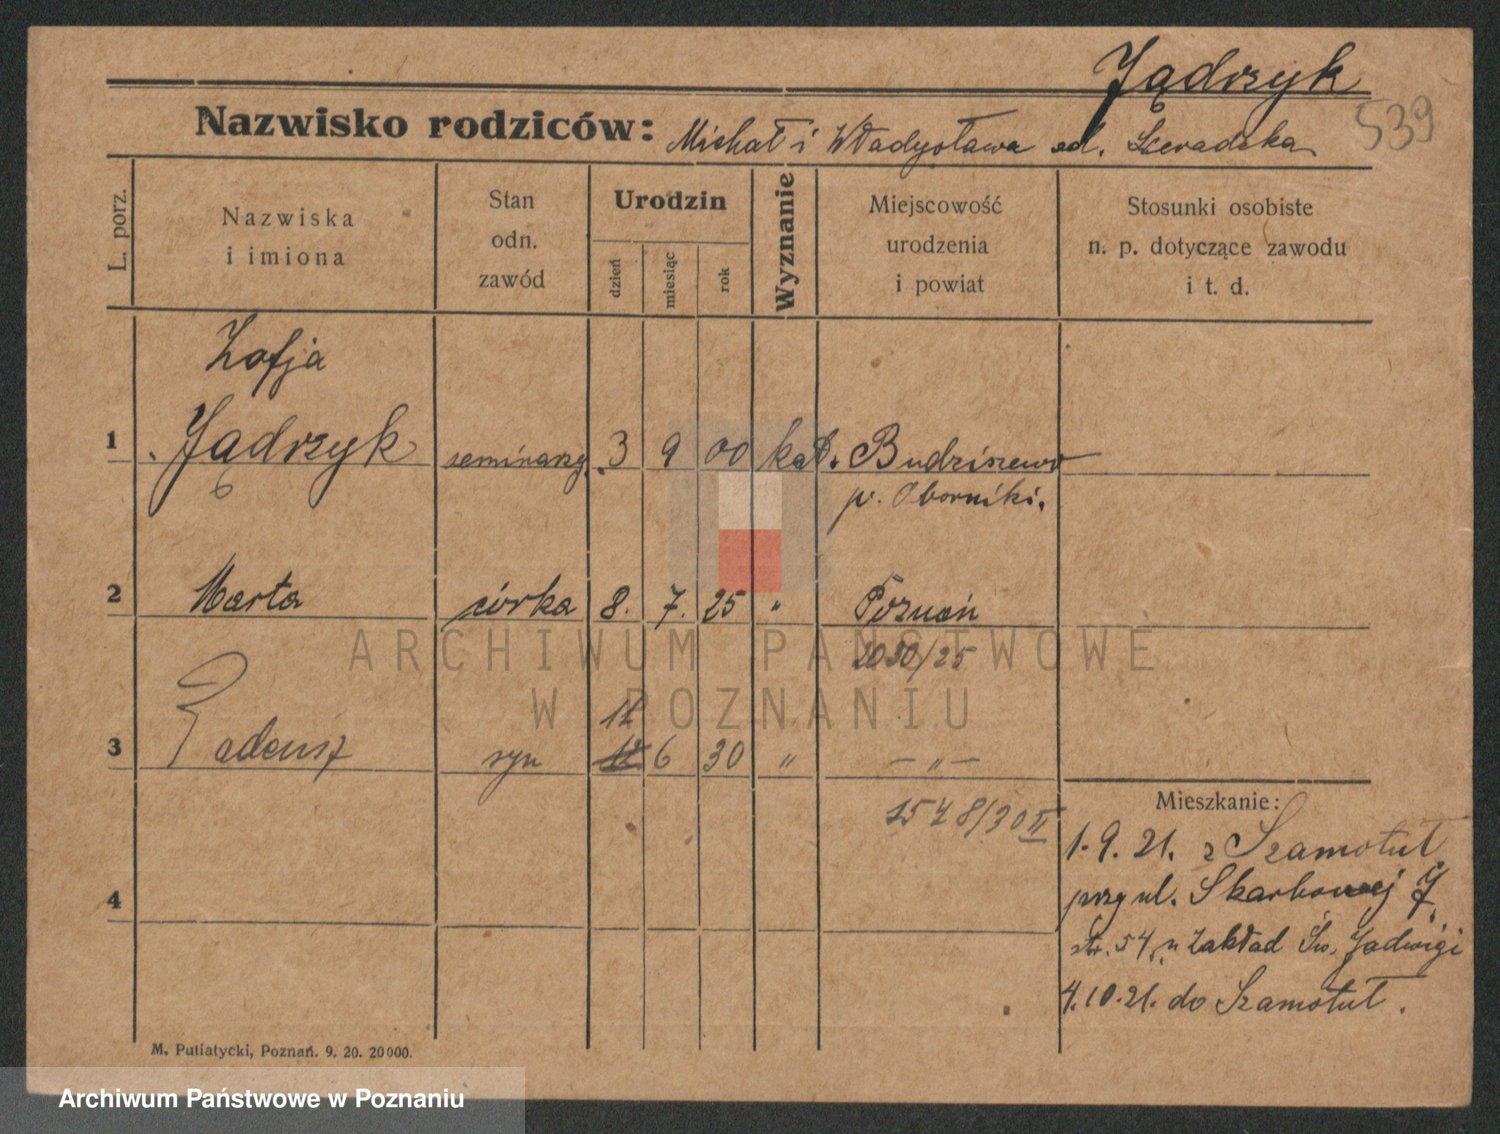 Jądrzyk
539
Nazwisko rodziców: Michał i Władysława od. Szeradzka
L. porz.
Nazwiska i imiona
Stan odn. zawód
Urodzin
dzień
miesiąc
rok
Wyznanie
Miejscowość urodzenia i powiat
Stosunki osobiste n. p. dotyczące zawodu i t. d.
Zofja
1 Jądrzyk seminarzy. 3 9 00 kat. Budziszewo
p. Oborniki.
2 Marta córka 8. 7. 25 " Poznań
2030/25
11
3 Tadeusz syn 12 6 30 " — " —
1548/30 II
Mieszkanie:
1.9.21. z Szamotuł
przy ul. Skarbowej 7.
str. 54, u Zakład Św. Jadwigi
4
4.10.21. do Szamotuł.
M. Putiatycki, Poznań. 9. 20. 20000.
ARCHIWUM PAŃSTWOWE
W POZNANIU
Archiwum Państwowe w Poznaniu